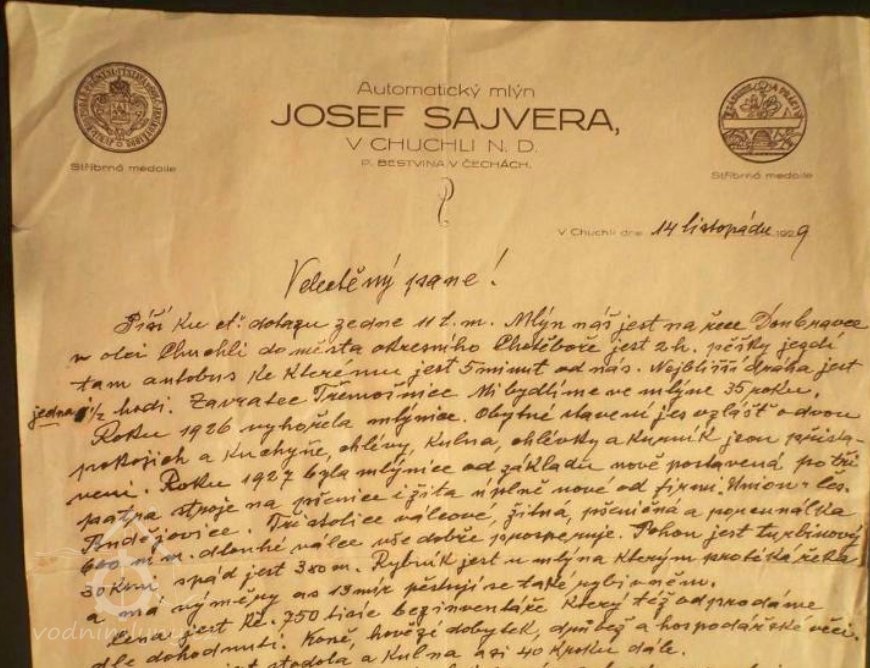 Automatický mlýn
JOSEF SAJVERA,
V CHUCHLI N. D.
P. BESTVINA V ČECHÁCH.
Stříbrná medaile
Stříbrná medaile
V Chuchli dne 14 listopadu 1929
Velectěný pane!
Píši ku ct. dotazu ze dne 11 t. m. Mlýn náš jest na řece Doubravce
v obci Chuchli do města okresního Chotěboře jest 2 h. pěšky jezdí
tam autobus ke kterému jest 5 minut od nás. Nejbližší dráha jest
jedna 1/2 hodi. Závratec Třemošnice Mi bydlíme ve mlýne 35 roku.
Roku 1926 vyhořela mlýnice. Obytné stavení jes vzlášť o dvou
pokojich a kuchyňe, chlévy, kulna, chlévky a kurník jsou při sta-
vení. Roku 1927 byla mlýnice od základu nově postavená po tři
patra stroje na pšenice i žita úplně nové od firmi Union - Čes.
Budějovice. Tři stolice válcové, žitná, pšeničná a porcunálka
600 m. m. dlouhé válce vše dobře prosperuje. Pohon jest turbinový
30 Km, spád jest 380 m. Rybník jest u mlýna kterým protéká řeka
a má výměry as 13 mír pěstuji se také rybi v něm.
Cena jest Kč. 750 tisíc bez inventáře který též odprodáme
dle dohodnutí. Koně, hovězí dobytek, drůbež a hospodářské věci.
stodola a kulna asi 40 kroku dále.
vodnimlyny.cz